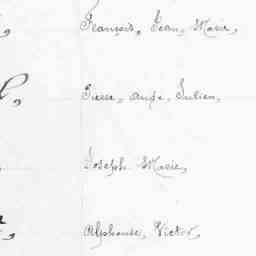 François, Jean, Marie,
Pierre, Ange, Julien,
Joseph Marie,
Alphonse, Victor,